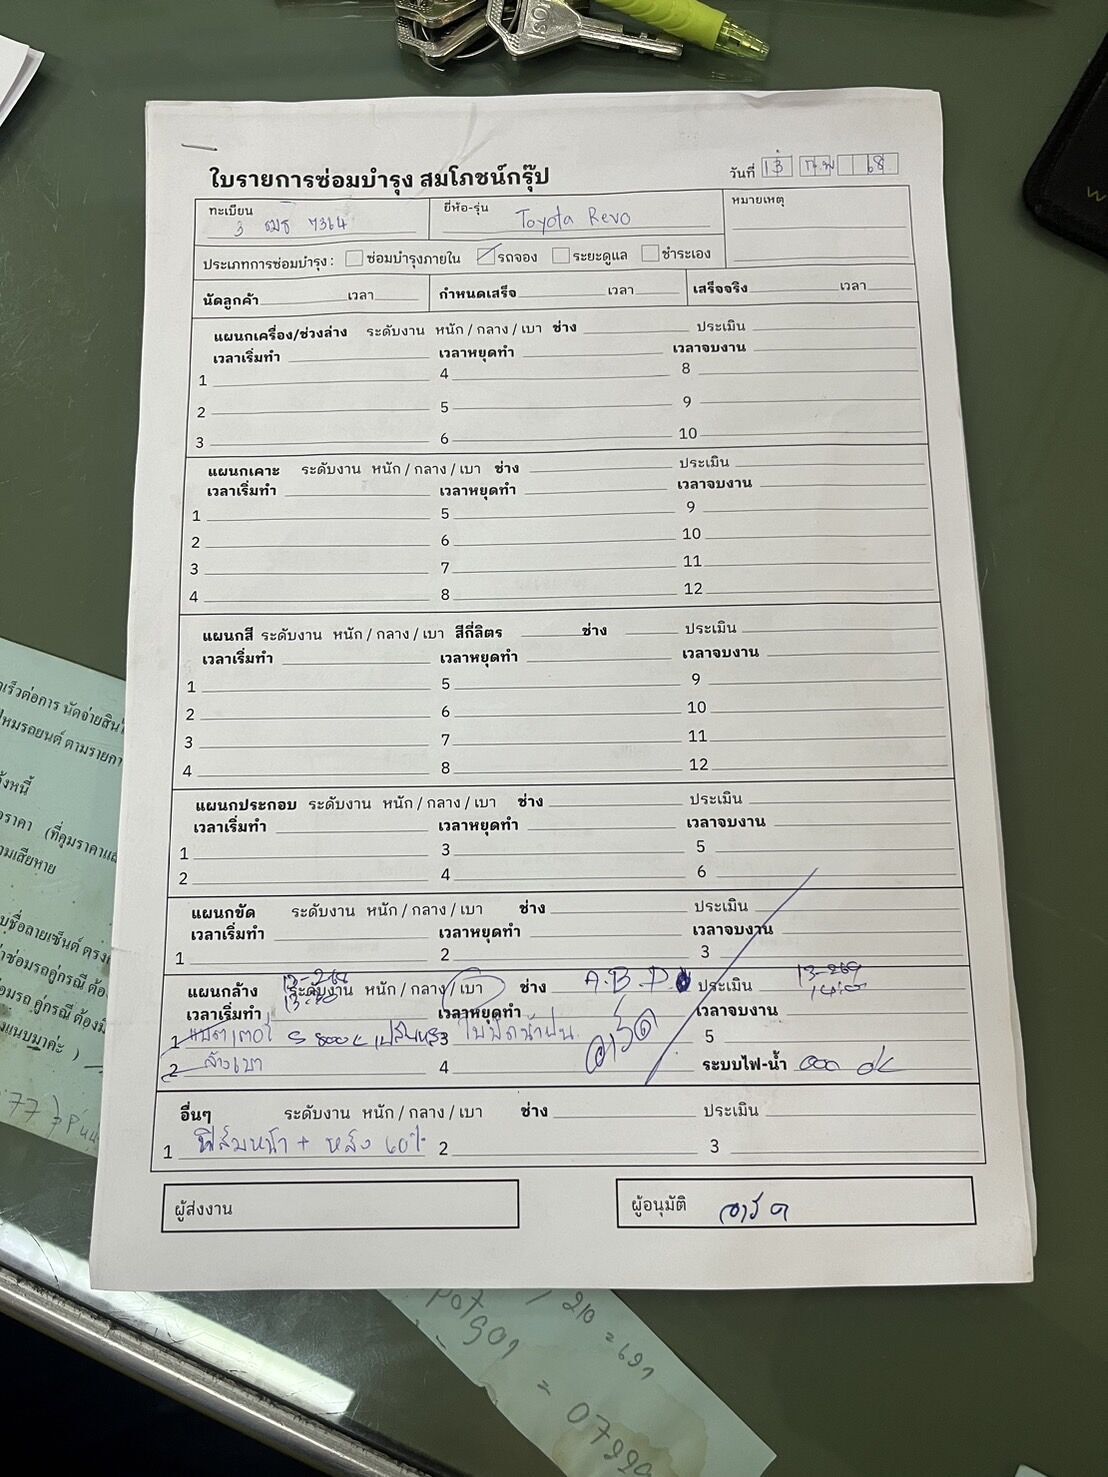 ใบรายการซ่อมบำรุง สมโภชน์กรุ๊ป
วันที่ 13 ก.พ 68
ทะเบียน 3 ฒธ 7364
ยี่ห้อ-รุ่น Toyota Revo
หมายเหตุ
ประเภทการซ่อมบำรุง : ซ่อมบำรุงภายใน รถจอง ระยะดูแล ชำระเอง
นัดลูกค้า เวลา กำหนดเสร็จ เวลา เสร็จจริง เวลา
แผนกเครื่อง/ช่วงล่าง ระดับงาน หนัก / กลาง / เบา ช่าง ประเมิน
เวลาเริ่มทำ เวลาหยุดทำ เวลาจบงาน
1 4 8
2 5 9
3 6 10
แผนกเคาะ ระดับงาน หนัก / กลาง / เบา ช่าง ประเมิน
เวลาเริ่มทำ เวลาหยุดทำ เวลาจบงาน
1 5 9
2 6 10
3 7 11
4 8 12
แผนกสี ระดับงาน หนัก / กลาง / เบา สีกี่ลิตร ช่าง ประเมิน
เวลาเริ่มทำ เวลาหยุดทำ เวลาจบงาน
1 5 9
2 6 10
3 7 11
4 8 12
แผนกประกอบ ระดับงาน หนัก / กลาง / เบา ช่าง ประเมิน
เวลาเริ่มทำ เวลาหยุดทำ เวลาจบงาน
1 3 5
2 4 6
แผนกขัด ระดับงาน หนัก / กลาง / เบา ช่าง ประเมิน
เวลาเริ่มทำ เวลาหยุดทำ เวลาจบงาน
1 2 3
แผนกล้าง ระดับงาน หนัก / กลาง / เบา ช่าง A.B.P. ประเมิน 13-269
เวลาเริ่มทำ เวลาหยุดทำ เวลาจบงาน
1 แบตเตอรี่ 3 ใบปัดน้ำฝน 5
2 ล้างเบา 4 ระบบไฟ-น้ำ ok
อื่นๆ ระดับงาน หนัก / กลาง / เบา ช่าง ประเมิน
1 ฟิล์มหน้า + หลัง 60% 2 3
ผู้ส่งงาน
ผู้อนุมัติ อาร์ต